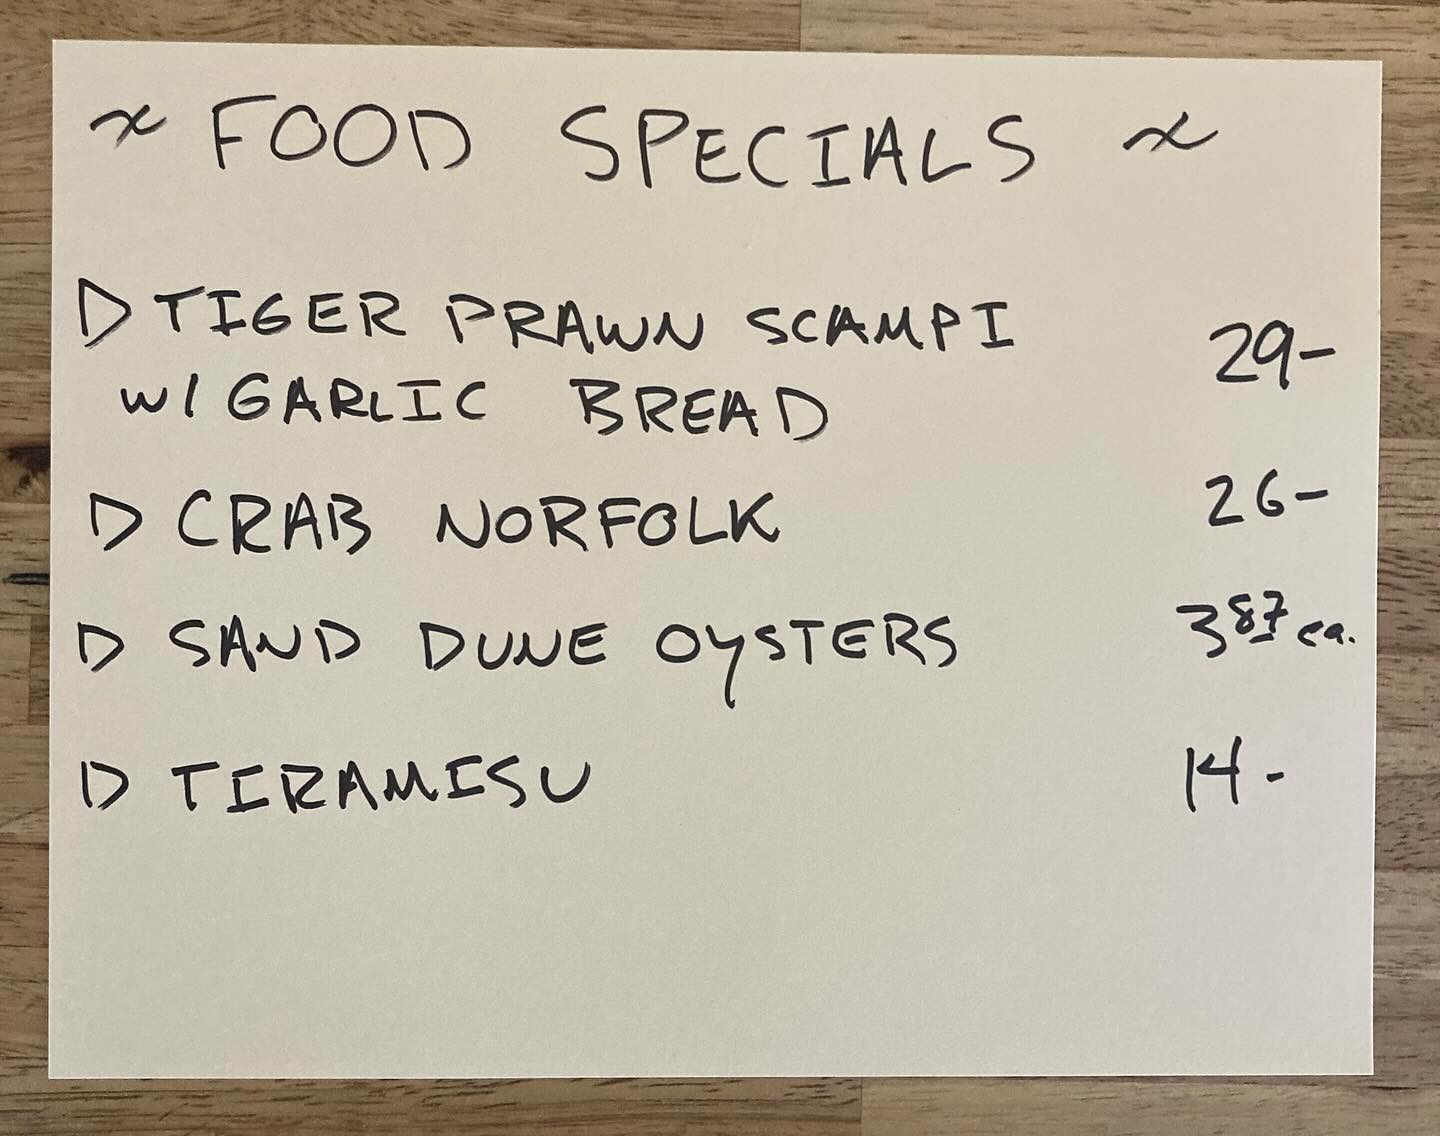 ~ FOOD SPECIALS ~
▷ TIGER PRAWN SCAMPI
w/ GARLIC BREAD 29-
▷ CRAB NORFOLK 26-
▷ SAND DUNE OYSTERS 3 87 ea.
▷ TIRAMISU 14-